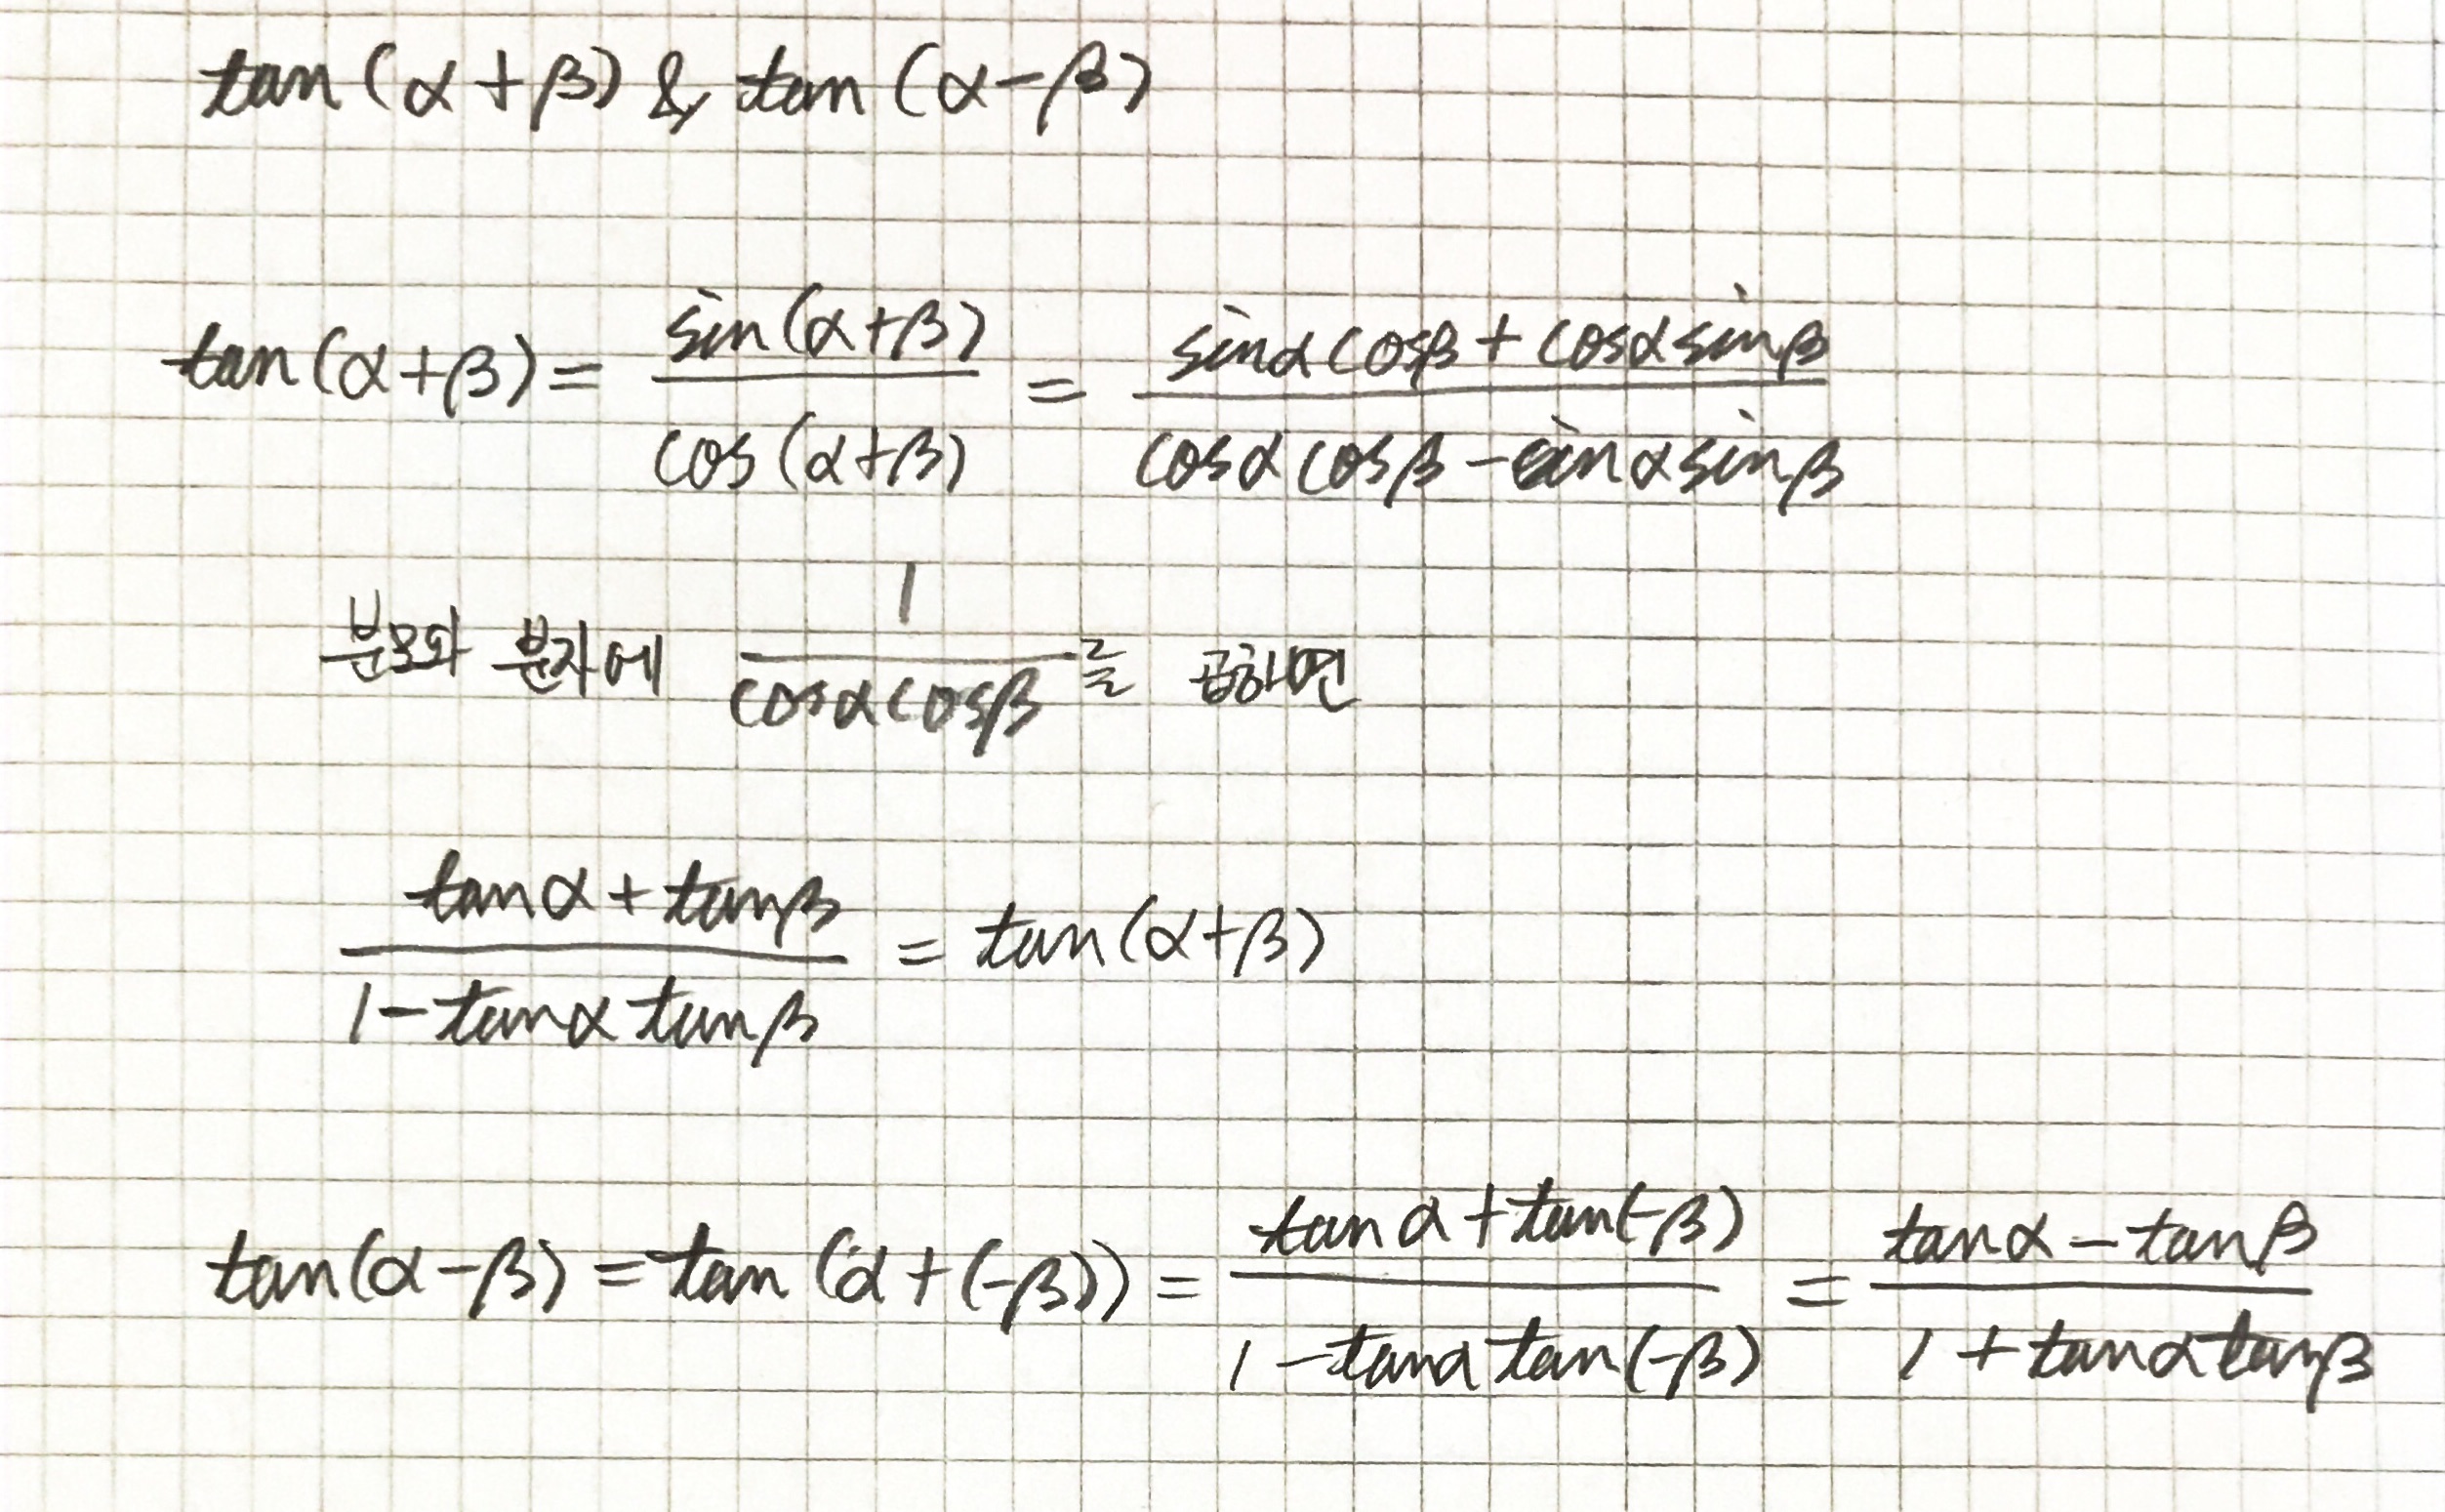 tan(α+β) & tan(α-β)
tan(α+β) = sin(α+β)/cos(α+β) = (sinα cosβ + cosα sinβ)/(cosα cosβ - sinα sinβ)
분모와 분자에 1/(cosα cosβ) 를 곱하면
(tanα + tanβ)/(1 - tanα tanβ) = tan(α+β)
tan(α-β) = tan(α+(-β)) = (tanα + tan(-β))/(1 - tanα tan(-β)) = (tanα - tanβ)/(1 + tanα tanβ)